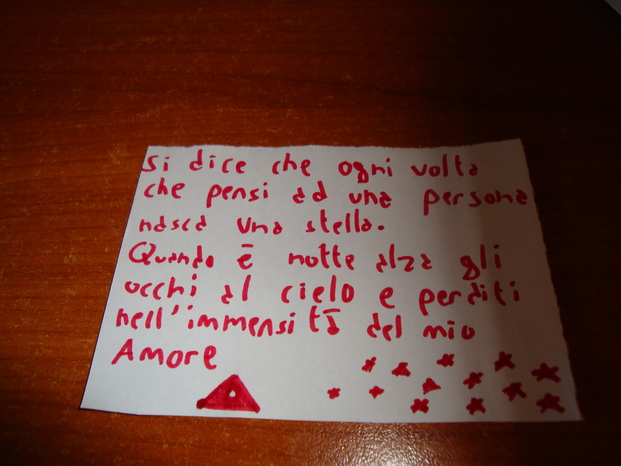 si dice che ogni volta
che pensi ad una persona
nasca una stella.
Quando è notte alza gli
occhi al cielo e perditi
nell'immensità del mio
Amore